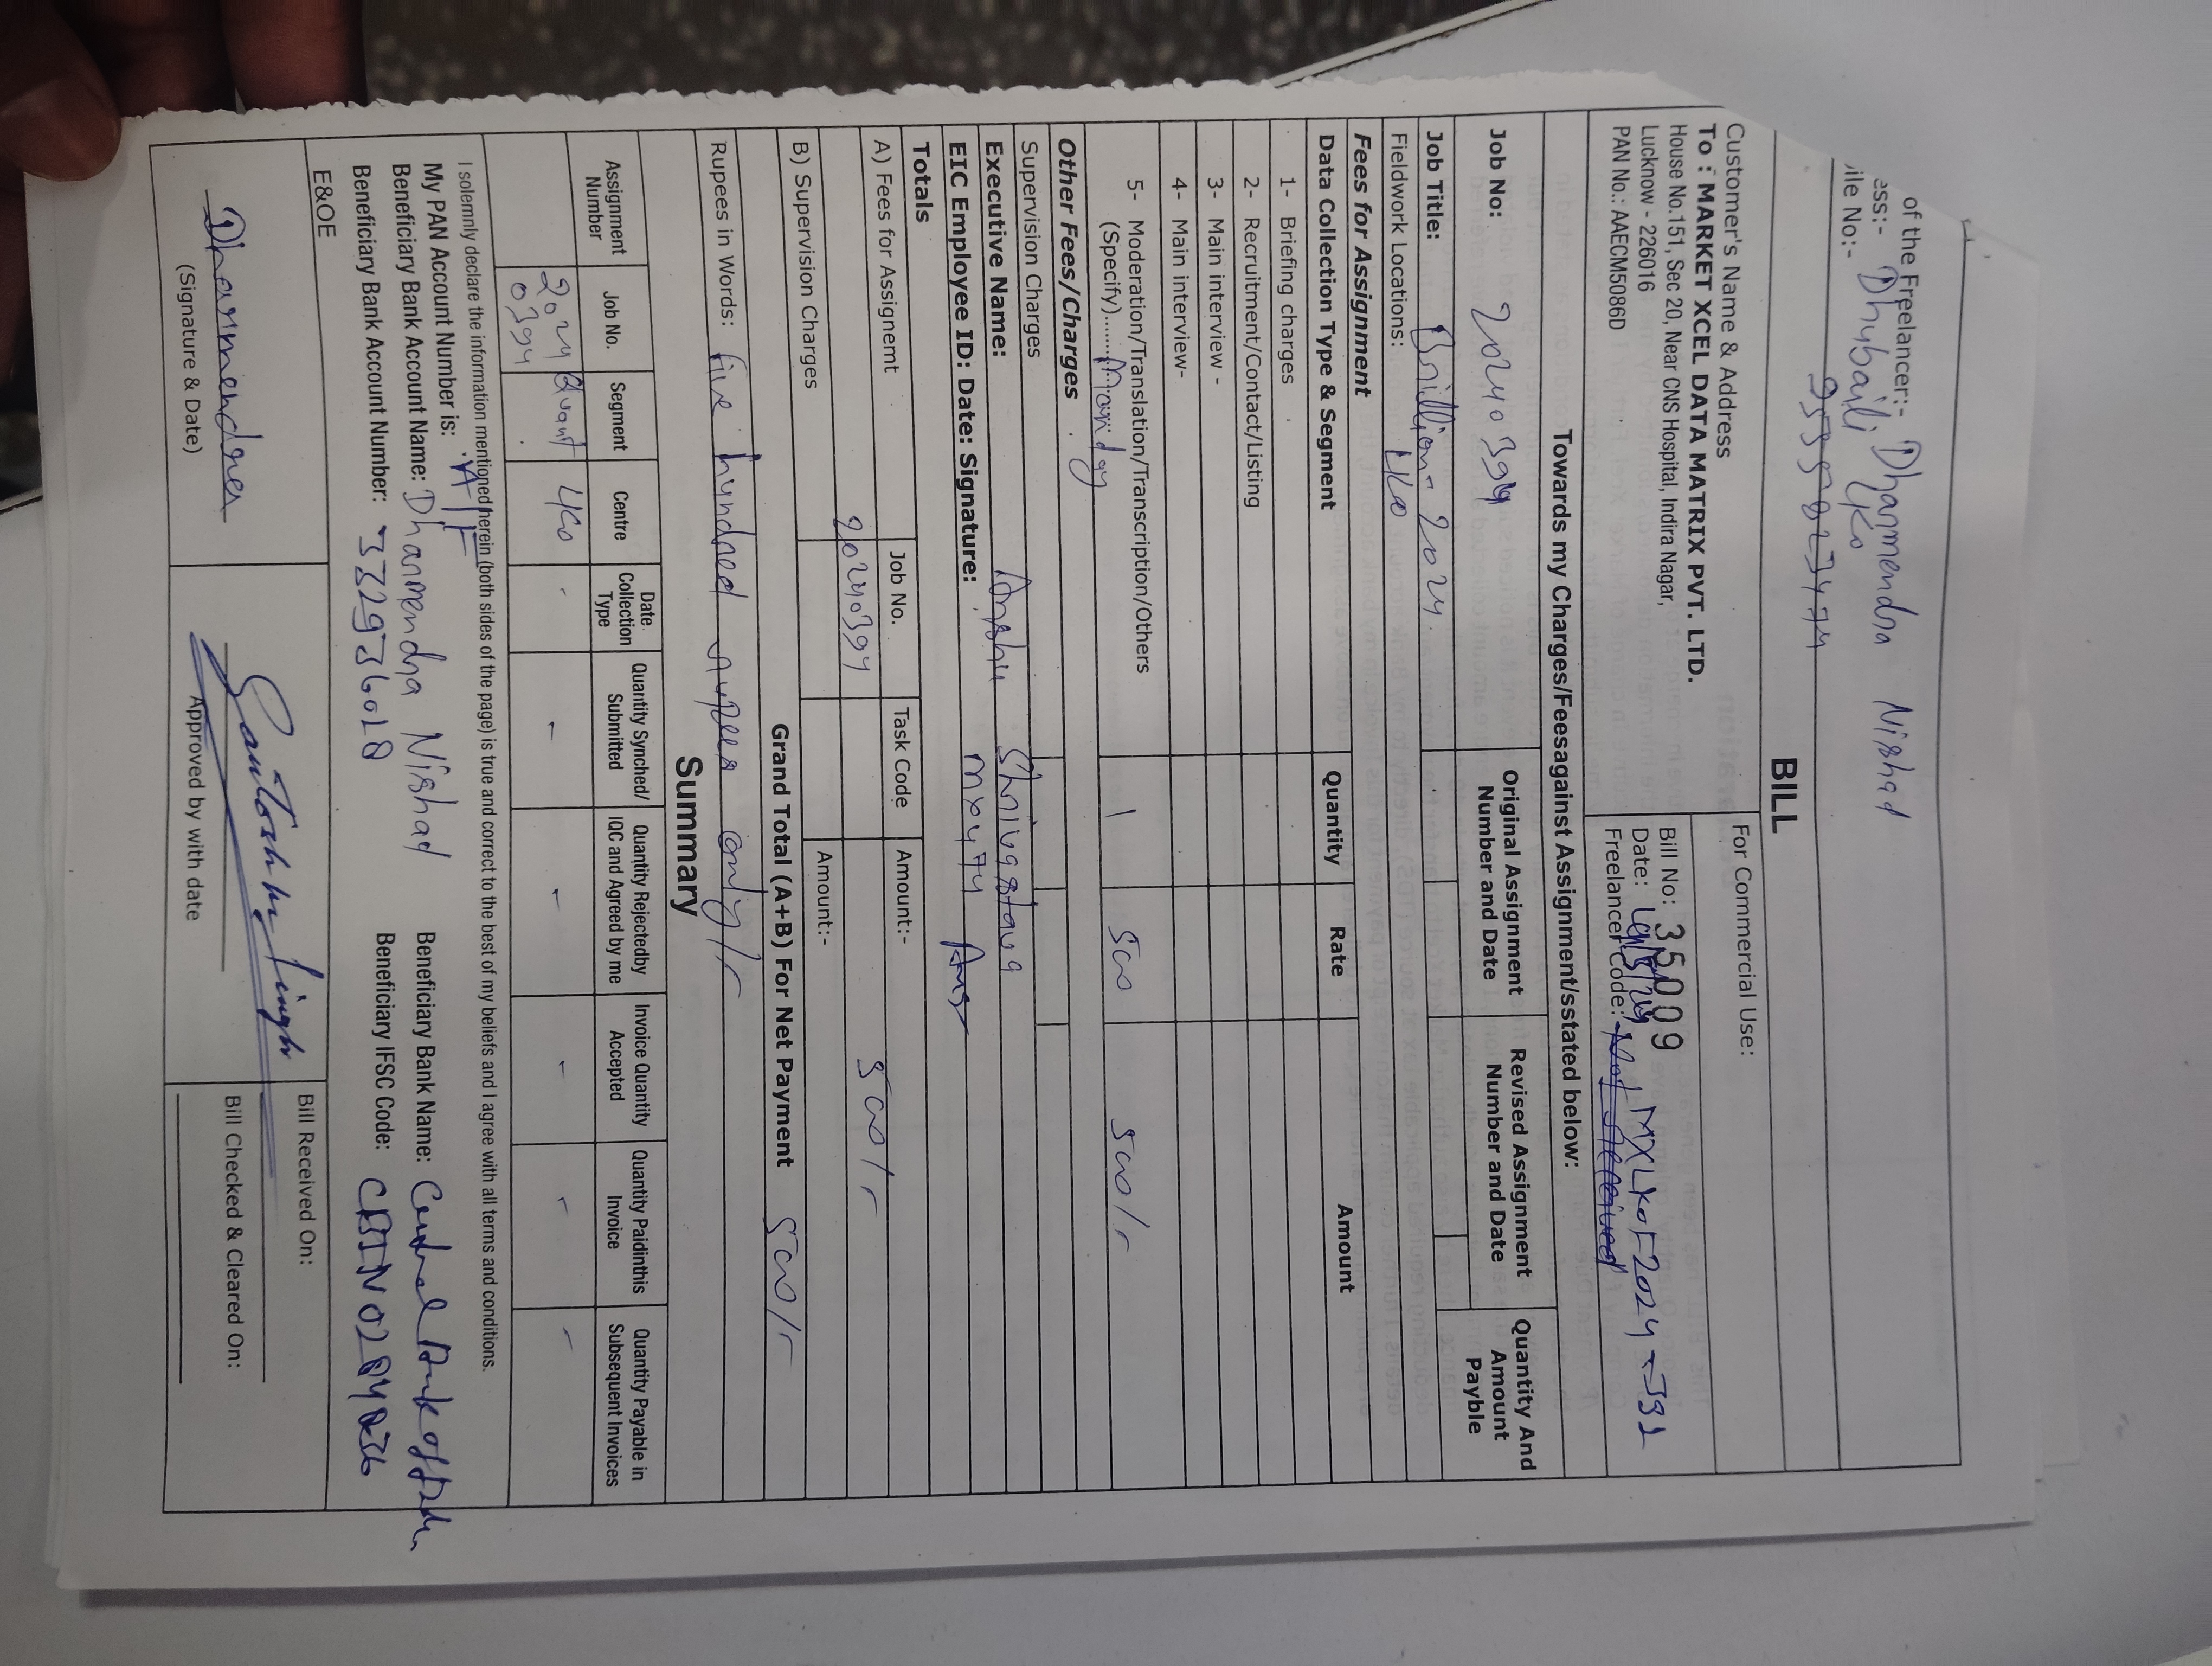 of the Freelancer:- Dharmendra Nishad
ess:- Dhubaili LKo
ile No:-
BILL
Customer's Name & Address
To : MARKET XCEL DATA MATRIX PVT. LTD.
House No.151, Sec 20, Near CNS Hospital, Indira Nagar,
Lucknow - 226016
PAN No.: AAECM5086D
For Commercial Use:
Bill No: 35009
Date:
Freelancer Code: MXLKOF2024-391
Towards my Charges/Feesagainst Assignment/sstated below:
Job No: 20240394
Original Assignment Number and Date
Revised Assignment Number and Date
Quantity And Amount Payble
Job Title: Brillion-2024
Fieldwork Locations: LKO
Fees for Assignment
Data Collection Type & Segment Quantity Rate Amount
1- Briefing charges
2- Recruitment/Contact/Listing
3- Main interview -
4- Main interview-
5- Moderation/Translation/Transcription/Others 1 500 500/-
(Specify)......
Other Fees/Charges
Supervision Charges
Executive Name: Anshu Shrivastava
EIC Employee ID: Date: Signature: MX474
Totals Job No. Task Code Amount:-
A) Fees for Assignemt 20240394 500/-
B) Supervision Charges Amount:-
Grand Total (A+B) For Net Payment 500/-
Rupees in Words: five hundred rupees only/-
Summary
Assignment Number Job No. Segment Centre Date Collection Type Quantity Synched/ Submitted Quantity Rejectedby IQC and Agreed by me Invoice Quantity Accepted Quantity Paidinthis Invoice Quantity Payable in Subsequent Invoices
20240394 Quant LKO - - - - - -
I solemnly declare the information mentioned herein (both sides of the page) is true and correct to the best of my beliefs and I agree with all terms and conditions.
My PAN Account Number is:
Beneficiary Bank Account Name: Dharmendra Nishad Beneficiary Bank Name: Central Bank of
Beneficiary Bank Account Number: Beneficiary IFSC Code:
E&OE
Dharmendra
(Signature & Date)
Santosh Kr Singh
Approved by with date
Bill Received On:
Bill Checked & Cleared On: